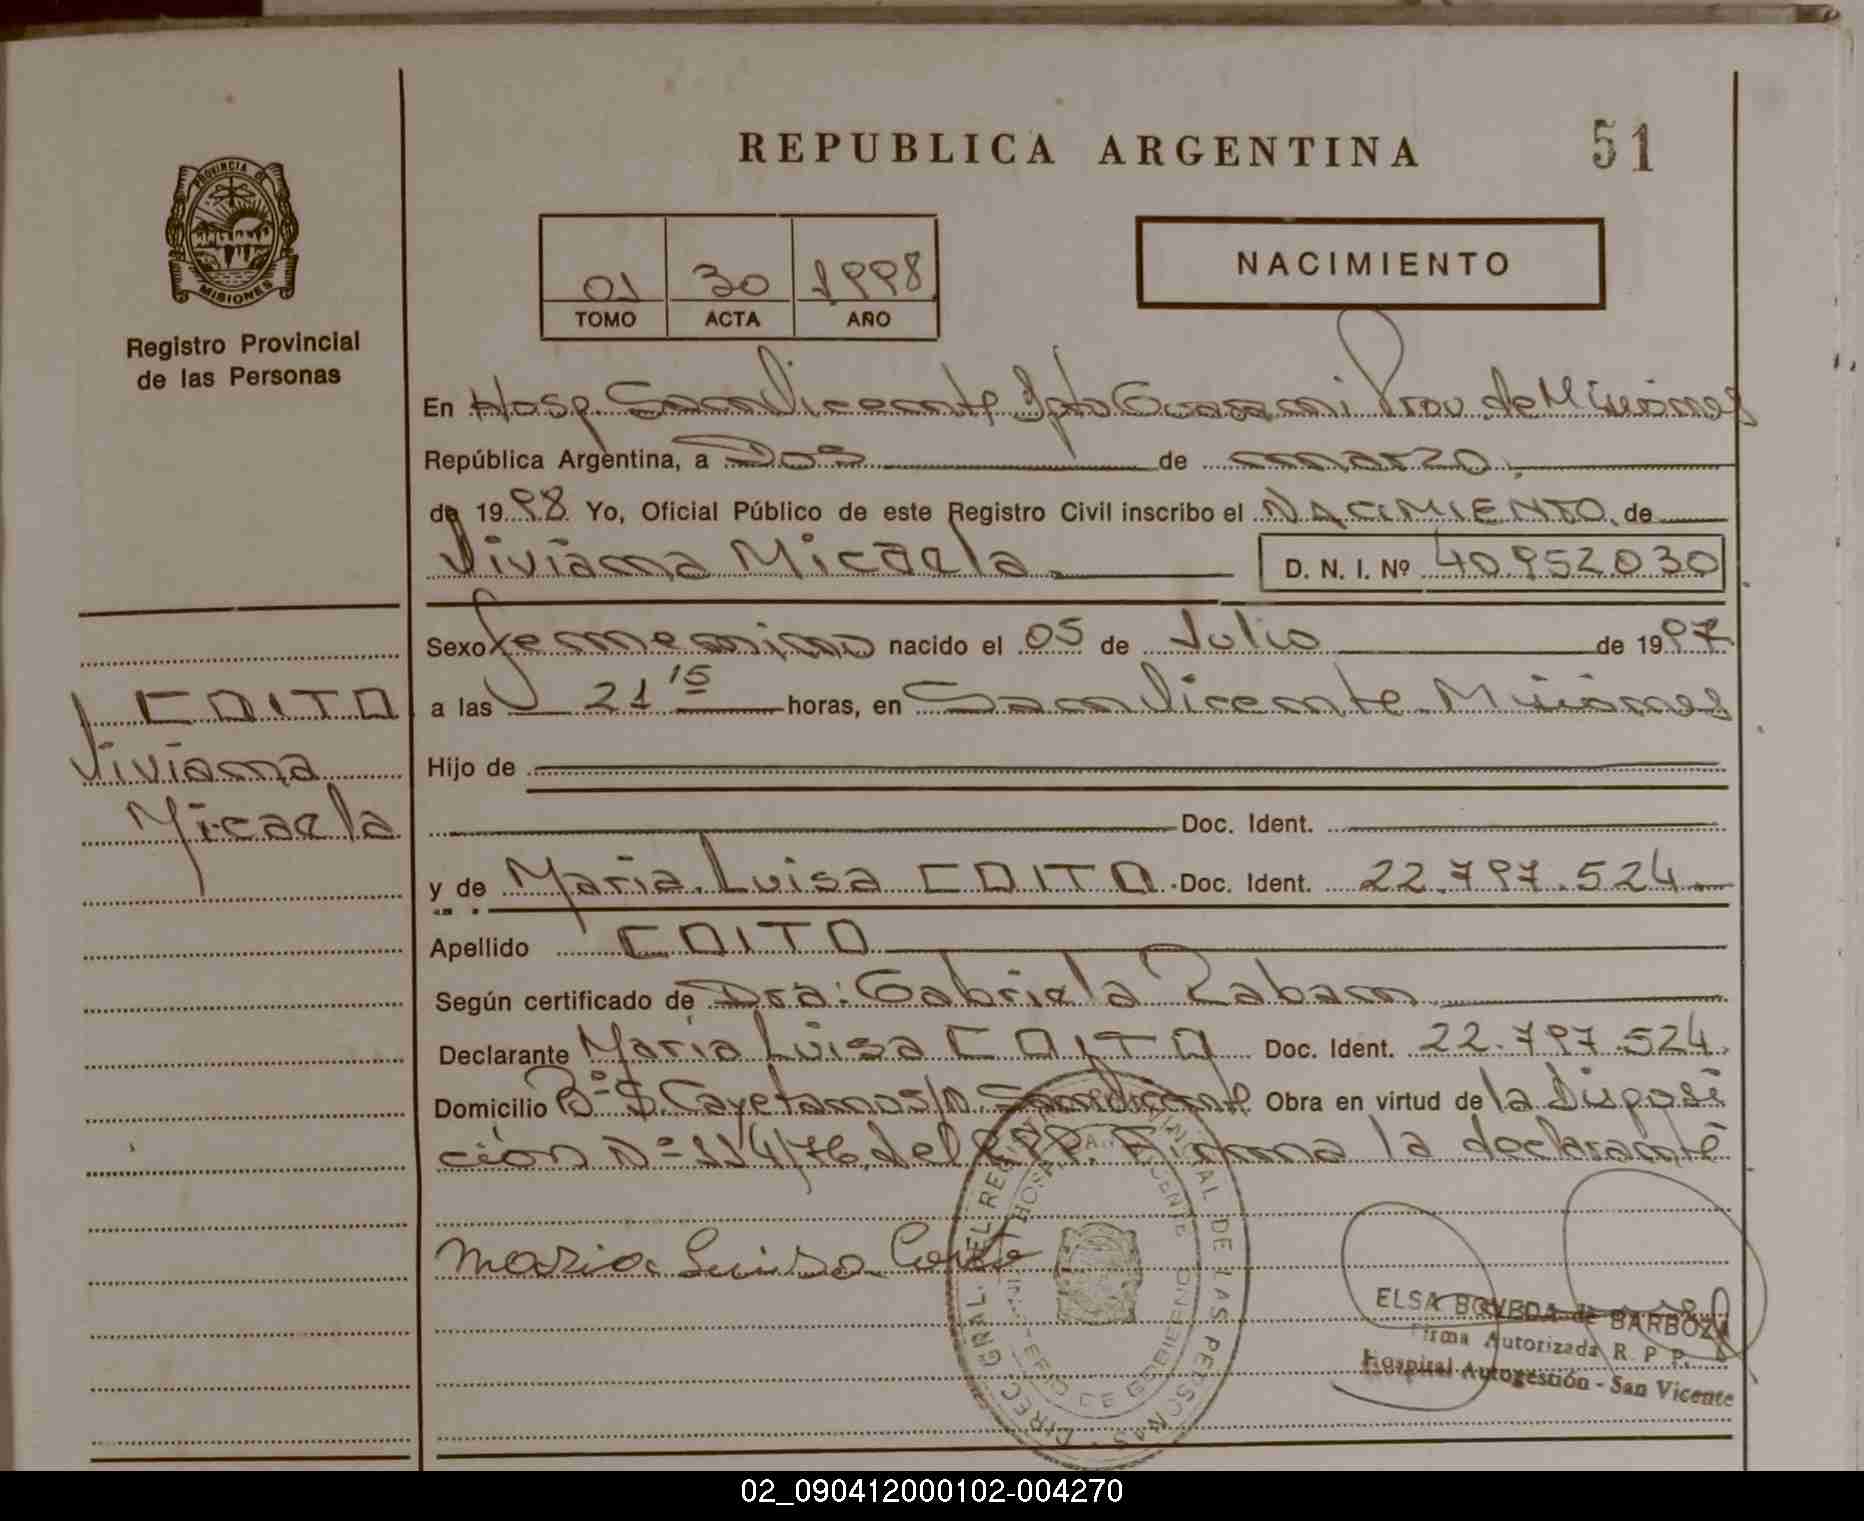 REPUBLICA ARGENTINA
51
PROVINCIA DE
MISIONES
Registro Provincial
de las Personas
01 30 1998
TOMO ACTA AÑO
NACIMIENTO
En Hosp. San Vicente Dpto Guarani Prov. de Misiones
República Argentina, a Dos de marzo
de 1998 Yo, Oficial Público de este Registro Civil inscribo el NACIMIENTO de
Viviana Micaela D. N. I. Nº 40.952.030
Sexo femenino nacido el 05 de Julio de 1997
a las 21 15 horas, en San Vicente Misiones
Hijo de
Doc. Ident.
y de Maria Luisa COITO Doc. Ident. 22.797.524
Apellido COITO
Según certificado de Dra: Gabriela Zaban
Declarante Maria Luisa COITO Doc. Ident. 22.797.524
Domicilio Bº S. Cayetano s/n San Vicente Obra en virtud de la Disposi
ción Nº 114/76 del R.P.P. Firma la declarante
COITO
Viviana
Micaela
Maria Luisa Coito
DIREC. GRAL. DEL REG. DE LAS PERSONAS
DE GOBIERNO
ELSA BOVEDA de BARBOZA
Firma Autorizada R. P. P.
Hospital Autogestión - San Vicente
02_090412000102-004270